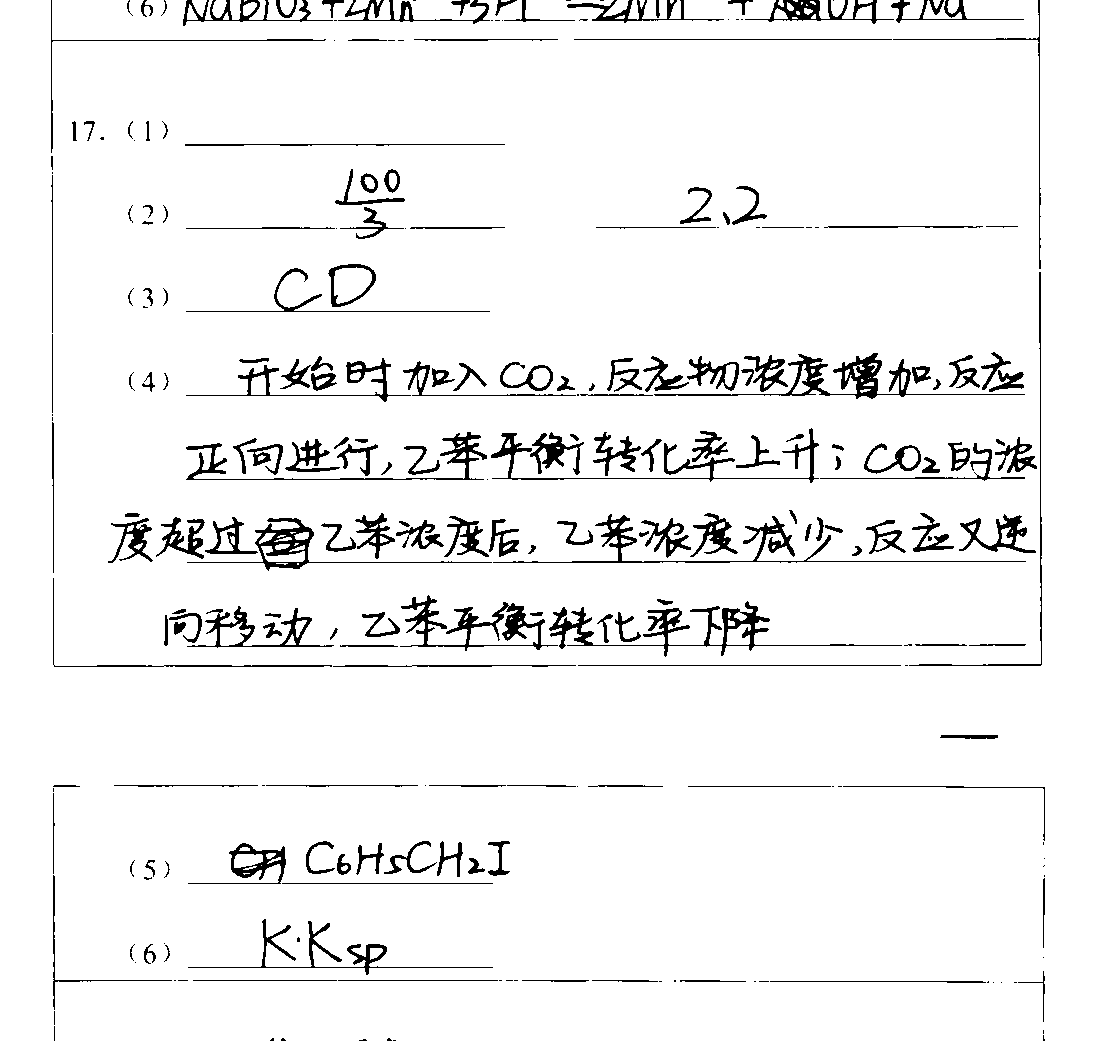 (6) NaBiO₃+2Mn
17. (1)
(2) 100/3 2.2
(3) CD
(4) 开始时加入CO₂,反应物浓度增加,反应
正向进行,乙苯平衡转化率上升;CO₂的浓
度超过乙苯浓度后,乙苯浓度减少,反应又逆
向移动,乙苯平衡转化率下降
(5) C₆H₅CH₂I
(6) K·Ksp